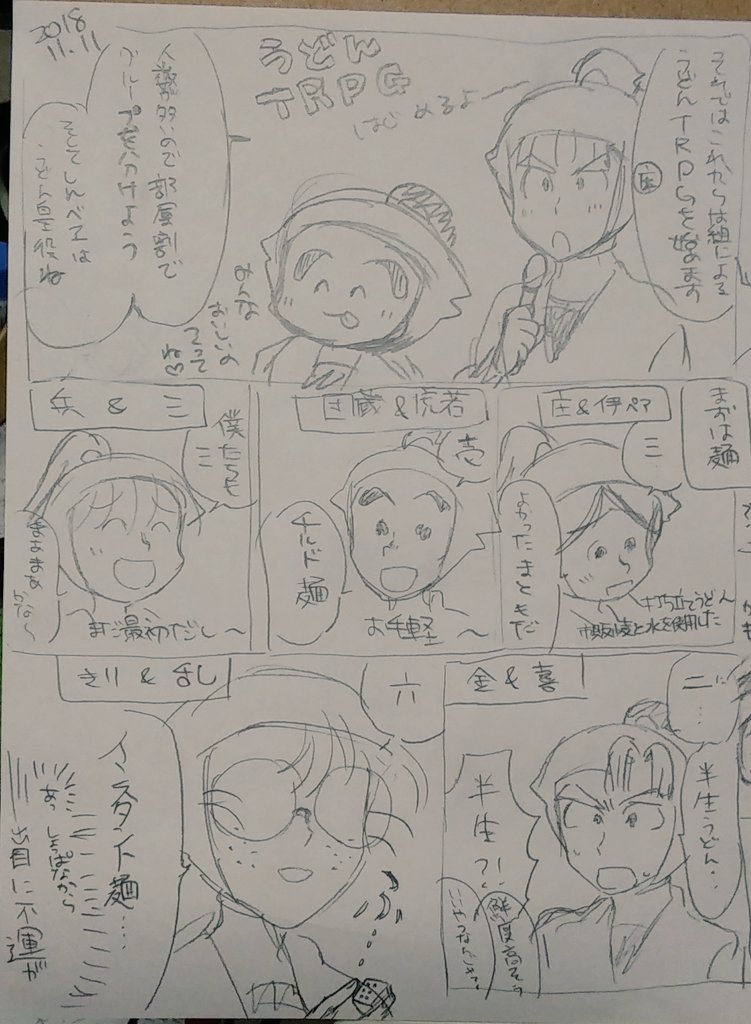 2018
11.11
うどん
TRPG
はじめるよ
それではこれからは組による
うどんTRPGを始めます
庄
人数が多いので部屋割で
グループを分けよう
そしてしんべヱは
うどん皇役ね
みんな
おいしいの
つくって
ね♡
まずは麺
庄&伊ペア
三
よかったまともだ
打ち立てうどん
団蔵&虎若
壱
チルド麺
お手軽〜
兵&三
僕たちも
三
まあまあかな〜
まだ最初だし〜
金&喜
二…
半生うどん…
半生?!
きり&乱
六
インスタント麺…
あっ
しょっぱなから
出目に不運が